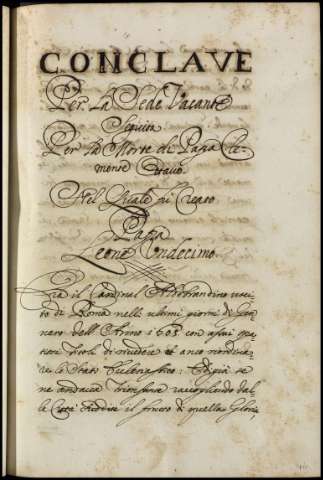 CONCLAVE
Per La Sede Vacante
Seguita
Per la Morte di Papa Cle-
mente Ottavo.
Nel Quale fu Creato
Papa
Leone Undecimo.
Era il Cardinal Aldobrandino usci-
to di Roma nelli ultimi giorni di Gen-
naro dell'Anno 1605 con
di rivedere et anco
lo Stato Ecclesiastico: Et già se
ne andava trionfante raccogliendo dal-
le Città il frutto di quella Gloria,